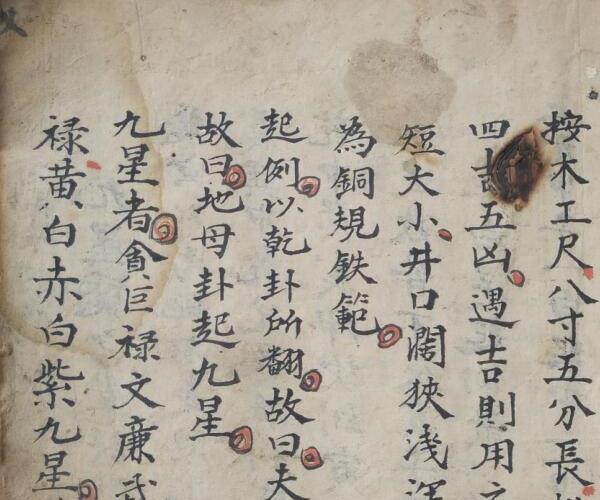 按木工尺八寸五分長
四吉五凶遇吉則用之
短大小井口濶狹淺深
為銅規鉄範
起例以乾卦所翻故曰天
故曰地母卦起九星
九星者貪巨禄文廉武
禄黄白赤白紫九星